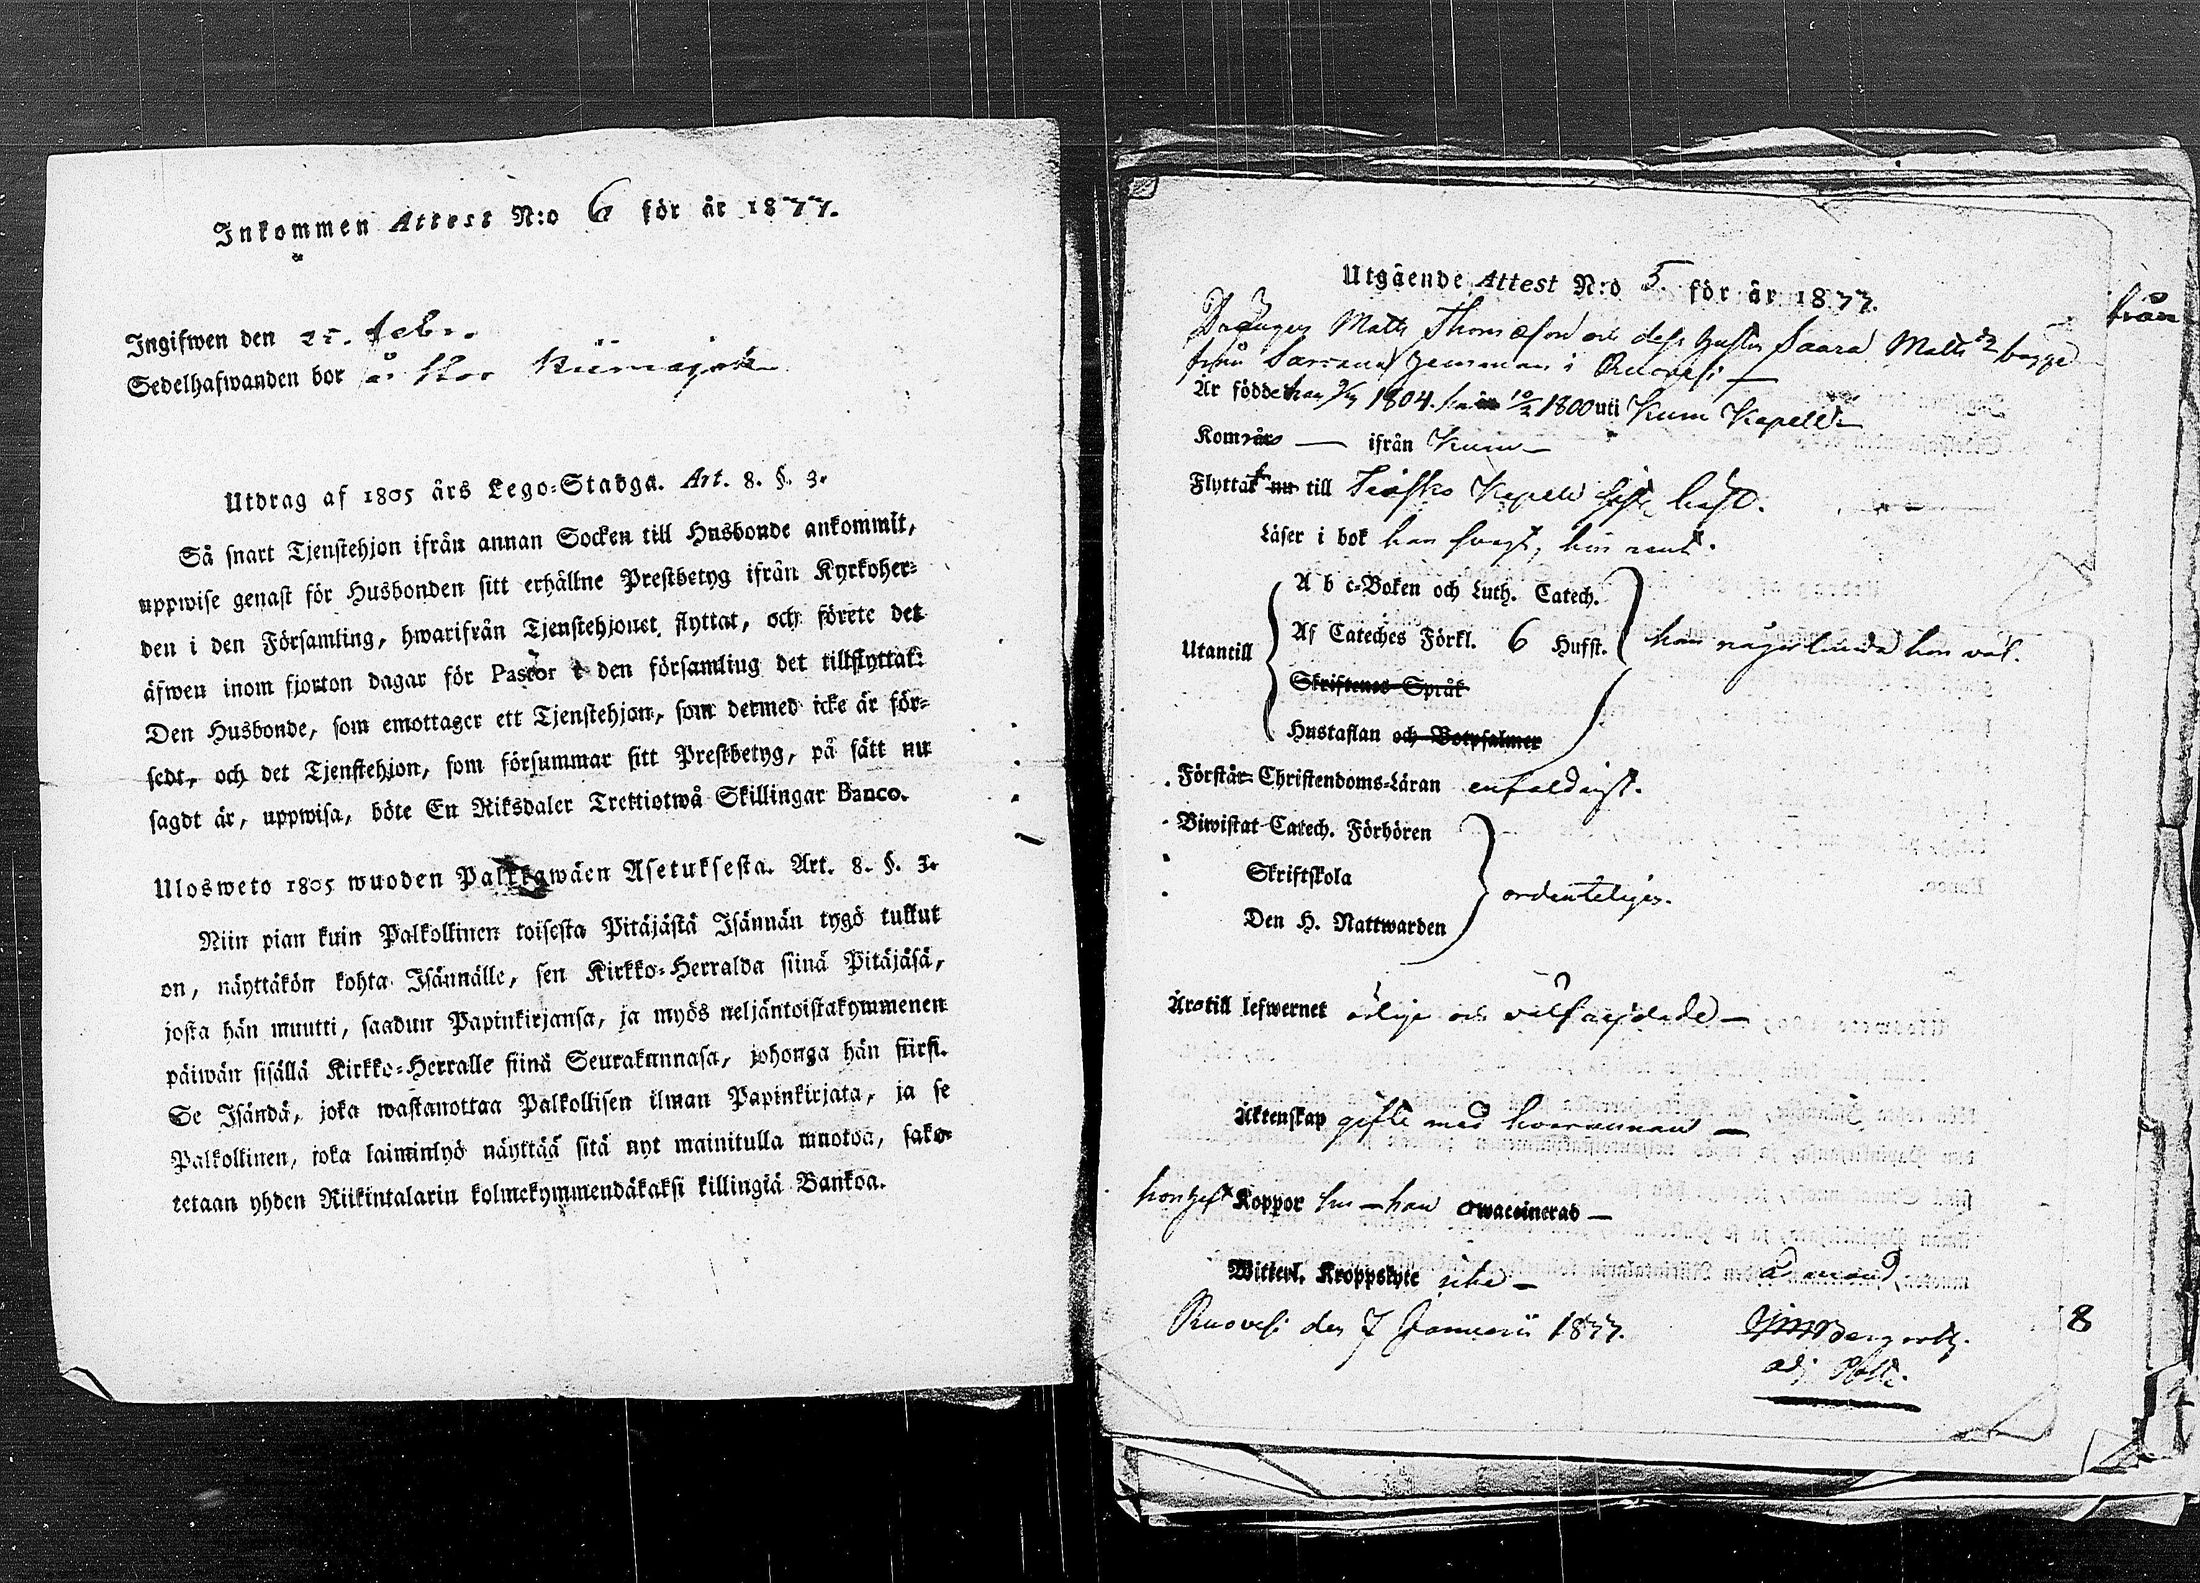 Inkommen Attest N:o 6 för år 1877.
Ingifwen den 25. Febr.
Sedelhafwanden bor
Utdrag af 1805 års Lego-Stadga. Art. 8. §. 3.
Så snart Tjenstehjon ifrån annan Socken till Husbonde ankommit,
uppwise genast för Husbonden sitt erhållne Prestbetyg ifrån Kyrkoher-
den i den Församling, hwarifrån Tjenstehjonet flyttat, och förete det
äfwen inom fjorton dagar för Pastor i den församling det tillflyttat:
Den Husbonde, som emottager ett Tjenstehjon, som dermed icke är för-
sedt, och det Tjenstehjon, som försummar sitt Prestbetyg, på sätt nu
sagdt är, uppwisa, böte En Riksdaler Trettiotwå Skillingar Banco.
Ulosweto 1805 wuoden Palkkawäen Asetuksesta. Art. 8. §. 3.
Niin pian kuin Palkollinen toisesta Pitäjästä Isännän tygö tullut
on, näyttäkön kohta Isännälle, sen Kirkko-Herralda siinä Pitäjäsä,
josta hän muutti, saadun Papinkirjansa, ja myös neljäntoistakymmenen
päiwän sisällä Kirkko-Herralle siinä Seurakunnasa, johonga hän siirsi.
Se Isändä, joka wastanottaa Palkollisen ilman Papinkirjata, ja se
Palkollinen, joka laiminlyö näyttää sitä nyt mainitulla muotoa, sako-
tetaan yhden Riikintalarin kolmekymmendäkaksi killingiä Bankoa.
Utgående Attest N:o 5. för år 1877.
från
Drängen Matts Thomasson och dess hustru Saara Matts dr bägge
från i Ruovesi
Är födde han 1804. 10/2 1800 uti Kuru Kapell
Kom ifrån Kuru
Flyttat nu till Teisko Kapell
Läser i bok han svagt, hon rent.
Utantill
A b c-Boken och Luth. Catech.
Af Cateches Förkl. 6 Hufst.
han någorlunda hon väl.
Skriftenes Språk
Hustaflan och Botpsalmer
Förstår Christendoms-Läran enfaldigt.
Biwistat Catech. Förhören
Skriftskola
Den H. Nattwarden
ordenteligen.
Äro till lefwernet ärlige och välfrejdade
Äktenskap gifte med hvarannan
Koppor han owaccinerad
Witterl. Kroppslyte icke
Ruovesi den 7 Januarii 1877.
Bergroth.
adj.
8